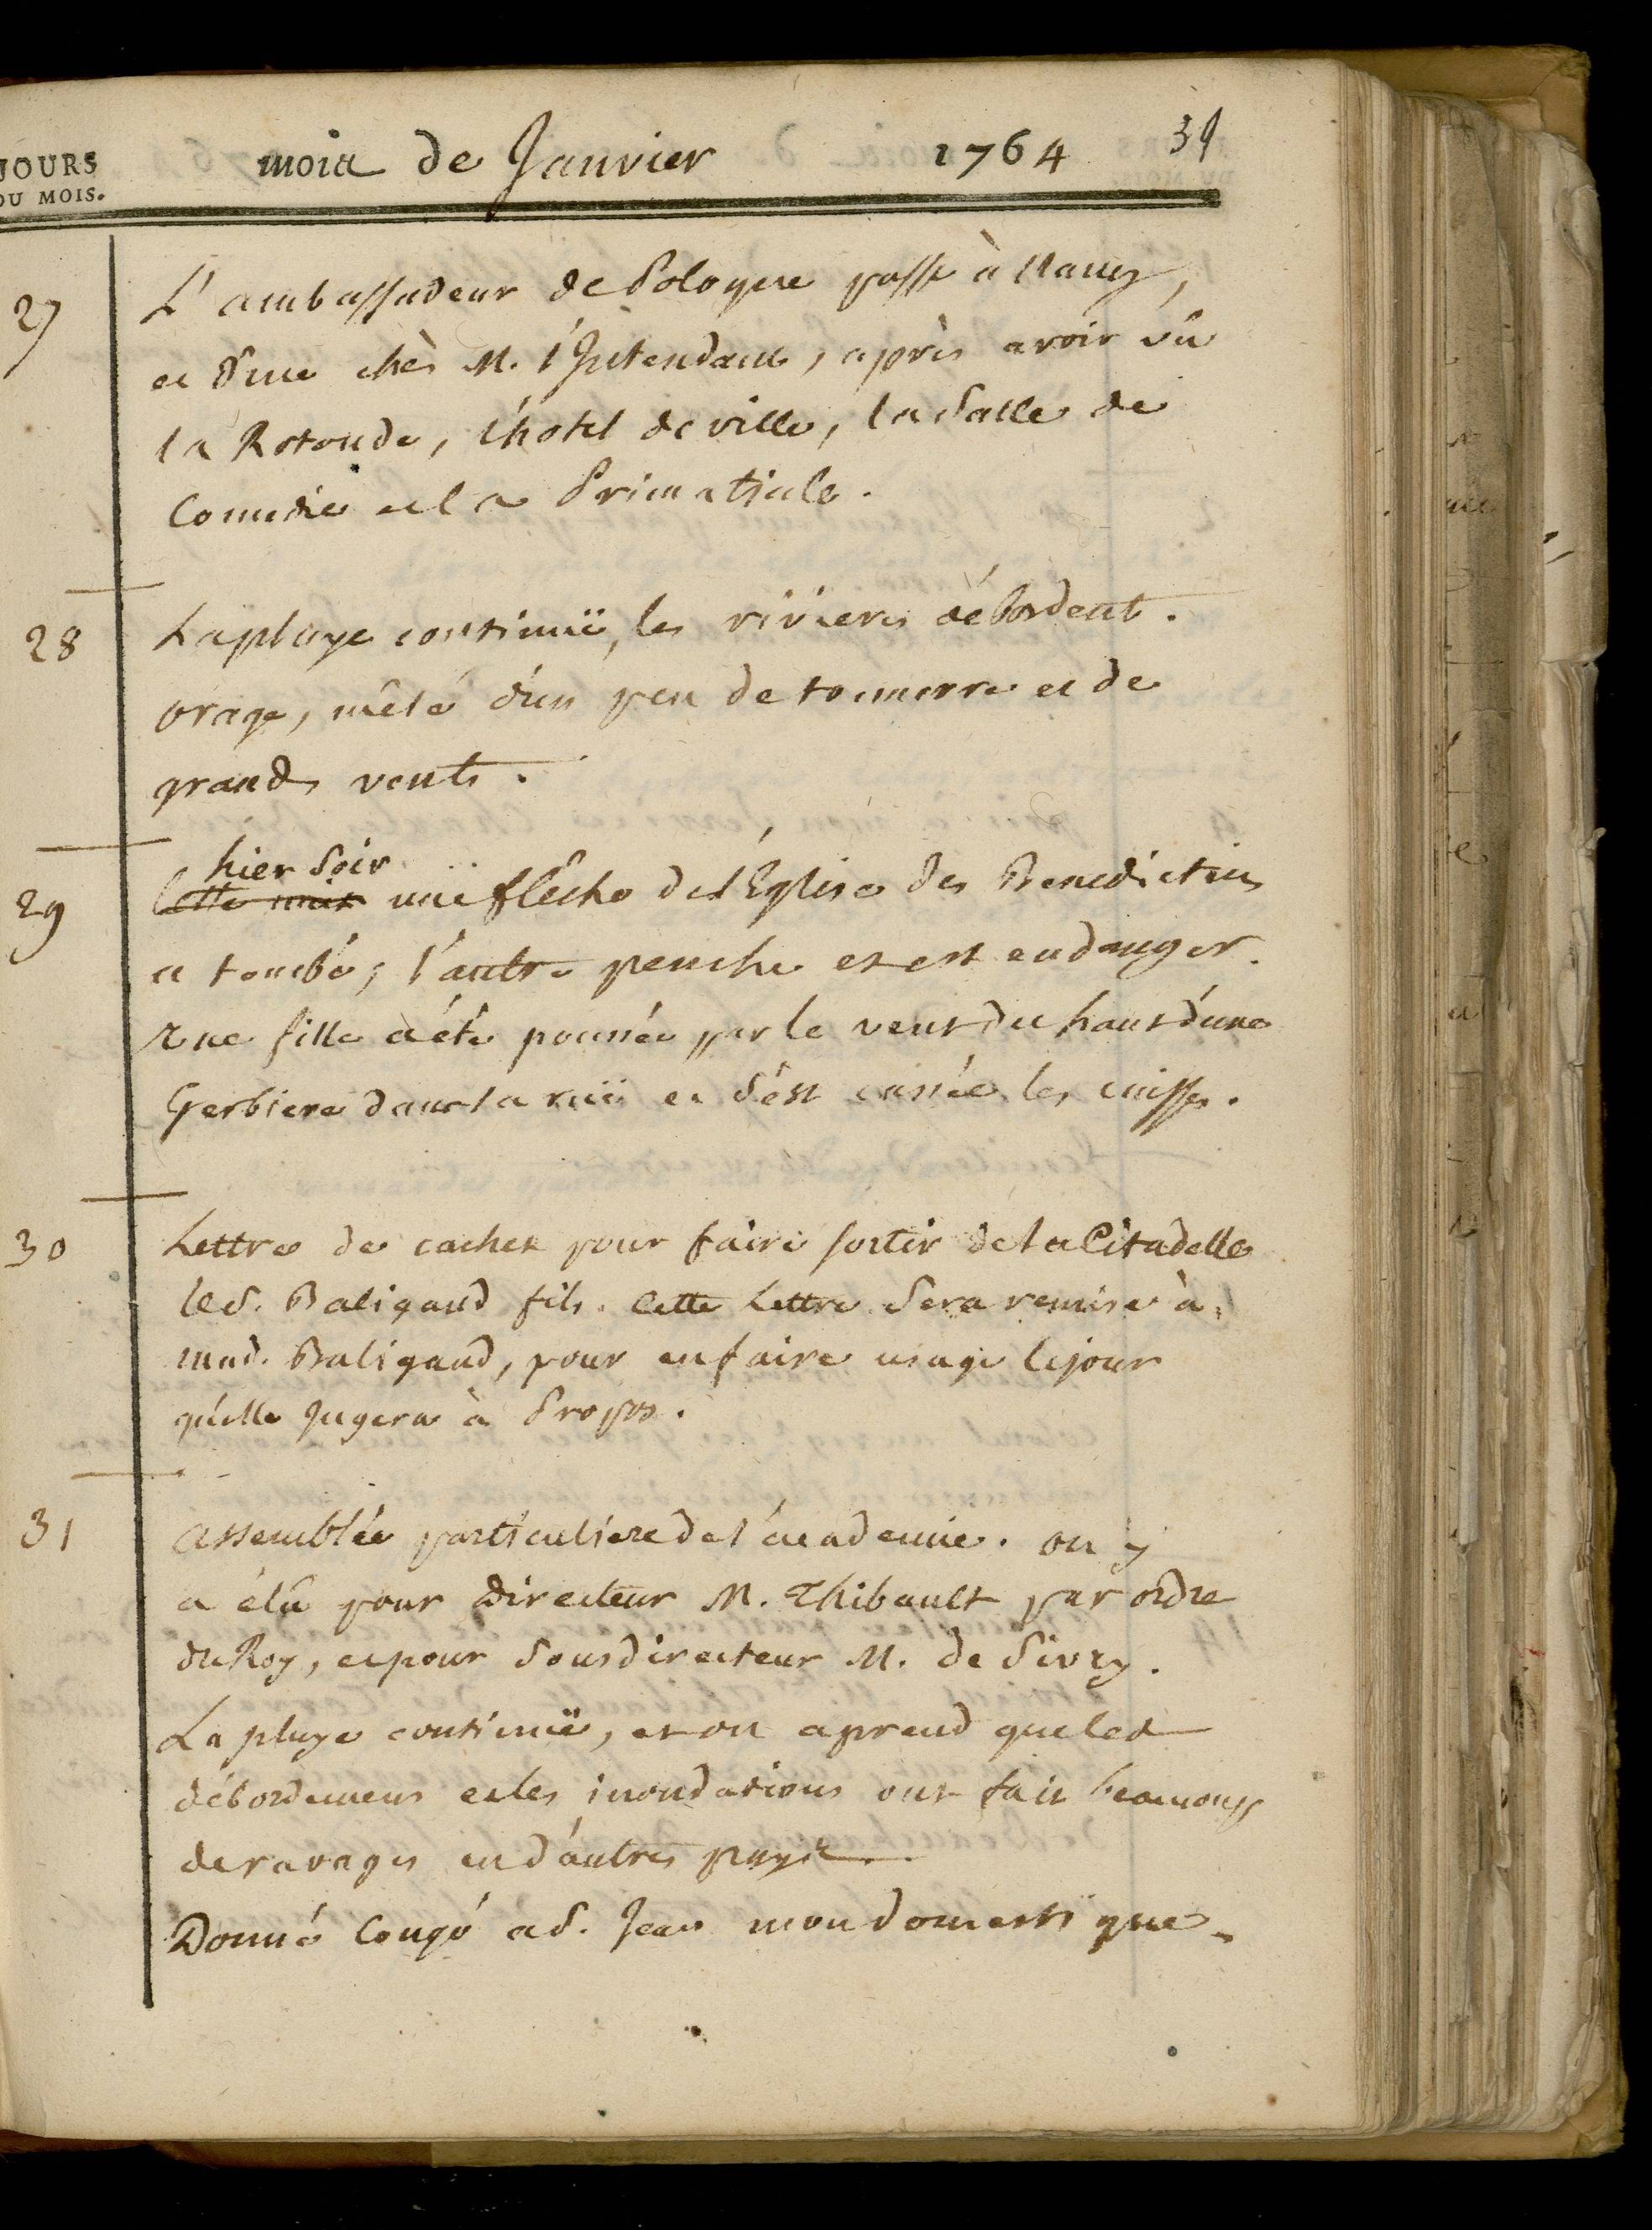 JOURS
DU MOIS.
mois de Janvier 1764 39
27 L'ambassadeur de Pologne passe à Nancy,
et dine chès M. l'Intendant, après avoir vû
la Rotonde, l'hotel de ville, la Salle de
Comedie et la Primatiale.
28 La pluye continuë, les rivieres débordent.
orage, mêlé d'un peu de tonnerre et de
grands vents.
hier Soir
29 Cette nuit une flèche de l'Eglise des Benedictins
a tombé, l'autre penche et est en danger.
une fille a été poussée par le vent du haut d'une
Gerbiere dans la ruë et s'est cassée les cuisses.
30 Lettre de cachet pour faire sortir de la Citadelle
le S. Baligand fils. cette Lettre Sera remise à
mad. Baligand, pour en faire usage le jour
qu'elle Jugera à Propos.
31 assemblée particuliere de l'academie. on y
a élû pour Directeur M. Thibault par ordre
du Roy, et pour Sousdirecteur M. de Sivry.
La pluye continuë, et on aprend que les
débordemens et les inondations ont fait beaucoup
de ravages en d'autres pays.
Donné Congé a S. Jean mon domestique.